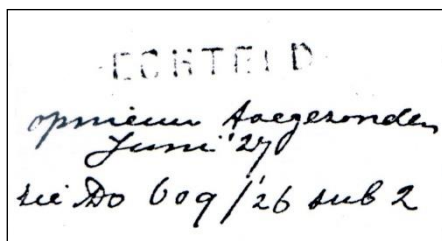 ECHTELD
opnieuw toegezonden
Juni '27
zie Do 609/'26 sub 2